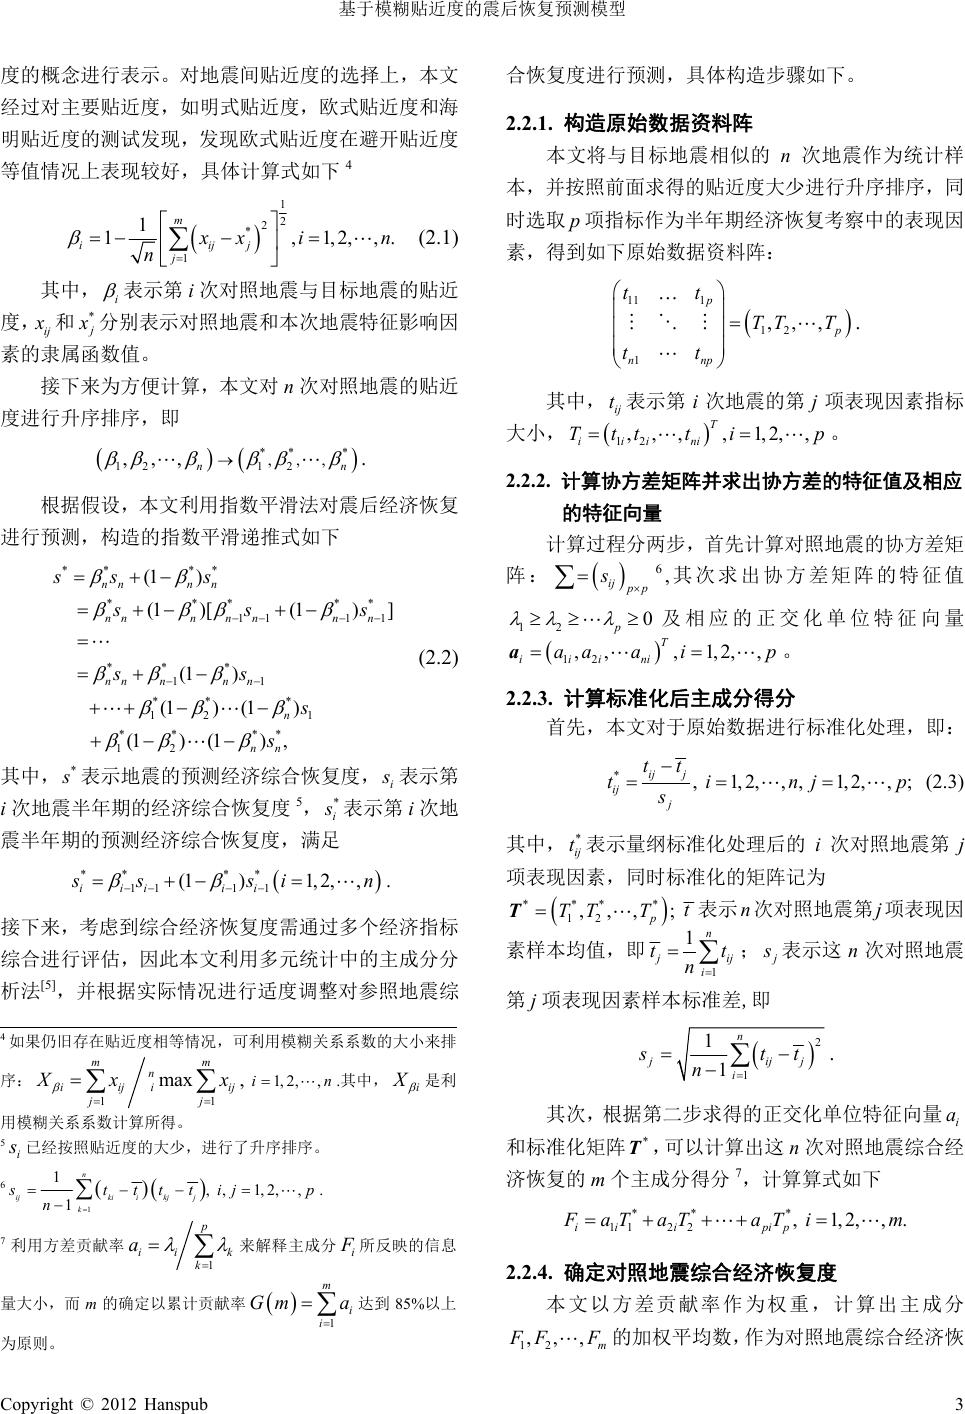 基于模糊贴近度的震后恢复预测模型
度的概念进行表示。对地震间贴近度的选择上，本文
经过对主要贴近度，如明式贴近度，欧式贴近度和海
明贴近度的测试发现，发现欧式贴近度在避开贴近度
等值情况上表现较好，具体计算式如下 4
β_i = 1 − (1/√n) [∑_{j=1}^{m} (x_ij − x_j^*)^2]^{1/2}, i = 1,2,⋯,n. (2.1)
其中，β_i 表示第 i 次对照地震与目标地震的贴近
度，x_ij 和 x_j^* 分别表示对照地震和本次地震特征影响因
素的隶属函数值。
接下来为方便计算，本文对 n 次对照地震的贴近
度进行升序排序，即
(β_1, β_2, ⋯, β_n) → (β_1^*, β_2^*, ⋯, β_n^*).
根据假设，本文利用指数平滑法对震后经济恢复
进行预测，构造的指数平滑递推式如下
s^* = β_n^* s_n + (1 − β_n^*) s_n^*
= β_n^* s_n + (1 − β_n^*)[β_{n−1}^* s_{n−1} + (1 − β_{n−1}^*) s_{n−1}^*]
= ⋯
= β_n^* s_n + β_{n−1}^* (1 − β_n^*) s_{n−1} (2.2)
+ ⋯ + β_1^* (1 − β_2^*) ⋯ (1 − β_n^*) s_1
+ β_1^* (1 − β_2^*) ⋯ (1 − β_n^*) s_n^*,
其中，s^* 表示地震的预测经济综合恢复度，s_i 表示第
i 次地震半年期的经济综合恢复度 5，s_i^* 表示第 i 次地
震半年期的预测经济综合恢复度，满足
s_i^* = β_{i−1}^* s_{i−1} + (1 − β_{i−1}^*) s_{i−1}^* (i = 1,2,⋯,n).
接下来，考虑到综合经济恢复度需通过多个经济指标
综合进行评估，因此本文利用多元统计中的主成分分
析法[5]，并根据实际情况进行适度调整对参照地震综
4 如果仍旧存在贴近度相等情况，可利用模糊关系系数的大小来排
序：X_βi = ∑_{j=1}^{m} x_ij / max_i^n ∑_{j=1}^{m} x_ij, i = 1,2,⋯,n.其中，X_βi 是利
用模糊关系系数计算所得。
5 s_i 已经按照贴近度的大少，进行了升序排序。
6 s_ij = (1/(n−1)) ∑_{k=1}^{n} (t_ki − t̄_i)(t_kj − t̄_j), i, j = 1,2,⋯,p.
7 利用方差贡献率 a_i = λ_i / ∑_{k=1}^{p} λ_k 来解释主成分 F_i 所反映的信息
量大小，而 m 的确定以累计贡献率 G(m) = ∑_{i=1}^{m} a_i 达到 85%以上
为原则。
合恢复度进行预测，具体构造步骤如下。
2.2.1. 构造原始数据资料阵
本文将与目标地震相似的 n 次地震作为统计样
本，并按照前面求得的贴近度大少进行升序排序，同
时选取 p 项指标作为半年期经济恢复考察中的表现因
素，得到如下原始数据资料阵：
(t_11 … t_1p
⋮ ⋱ ⋮ = (T_1, T_2, ⋯, T_p).
t_n1 ⋯ t_np)
其中，t_ij 表示第 i 次地震的第 j 项表现因素指标
大小，T_i = (t_1i, t_2i, ⋯, t_ni)^T, i = 1,2,⋯,p。
2.2.2. 计算协方差矩阵并求出协方差的特征值及相应
的特征向量
计算过程分两步，首先计算对照地震的协方差矩
阵：∑ = (s_ij)_{p×p} 6,其次求出协方差矩阵的特征值
λ_1 ≥ λ_2 ≥ ⋯ ≥ λ_p ≥ 0 及相应的正交化单位特征向量
a_i = (a_1i, a_2i, ⋯ a_ni)^T, i = 1,2,⋯,p。
2.2.3. 计算标准化后主成分得分
首先，本文对于原始数据进行标准化处理，即：
t_ij^* = (t_ij − t̄_j)/s_j, i = 1,2,⋯,n, j = 1,2,⋯,p; (2.3)
其中，t_ij^* 表示量纲标准化处理后的 i 次对照地震第 j
项表现因素，同时标准化的矩阵记为
T^* = (T_1^*, T_2^*, ⋯, T_p^*); t̄ 表示 n 次对照地震第 j 项表现因
素样本均值，即 t̄_j = (1/n) ∑_{i=1}^{n} t_ij；s_j 表示这 n 次对照地震
第 j 项表现因素样本标准差,即
s_j = √((1/(n−1)) ∑_{i=1}^{n} (t_ij − t̄_j)^2).
其次，根据第二步求得的正交化单位特征向量 a_i
和标准化矩阵 T^*，可以计算出这 n 次对照地震综合经
济恢复的 m 个主成分得分 7，计算算式如下
F_i = a_1i T_1^* + a_2i T_2^* + ⋯ + a_pi T_p^*, i = 1,2,⋯,m.
2.2.4. 确定对照地震综合经济恢复度
本文以方差贡献率作为权重，计算出主成分
F_1, F_2, ⋯, F_m 的加权平均数，作为对照地震综合经济恢
Copyright © 2012 Hanspub 3